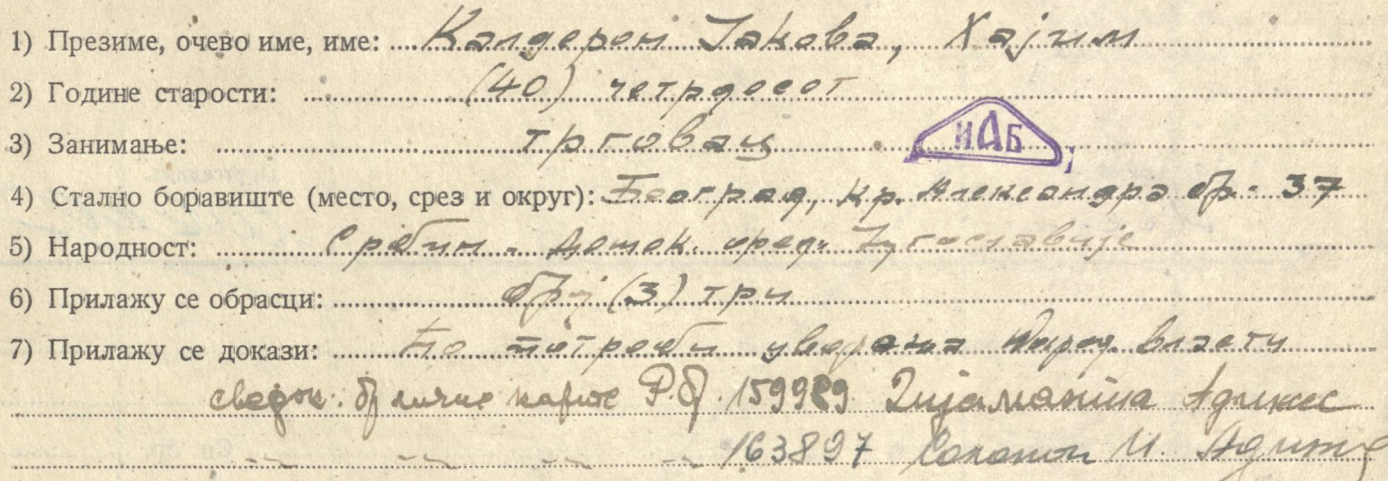 1) Презиме, очево име, име: Калдерон Јакова, Хајим
2) Године старости: (40) четрдесет
3) Занимање: трговац
ИАБ
4) Стално боравиште (место, срез и округ): Београд, Кр. Александра бр. 37
5) Народност: Србин Југославије
6) Прилажу се обрасци: број (3) три
7) Прилажу се докази: По потреби уверења Народ. власти
сведок: бр личне карте Р.бр. 159989
163897 М.